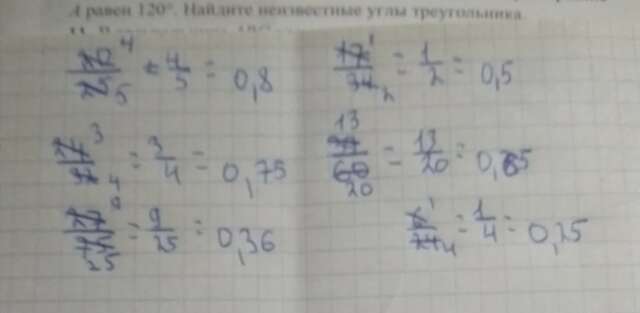 А равен 120°. Найдите неизвестные углы треугольника
4/5 = 0,8
17/34 = 1/2 = 0,5
3/4 = 0,75
39/60 = 13/20 = 0,65
27/75 = 9/25 = 0,36
6/24 = 1/4 = 0,25